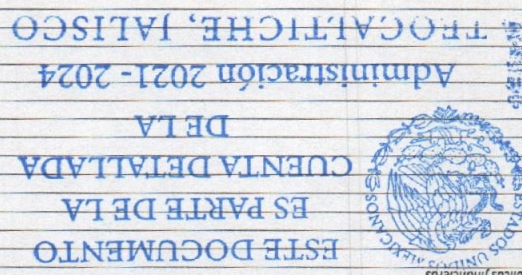 ESTE DOCUMENTO
ES PARTE DE LA
CUENTA DETALLADA
DE LA
Administración 2021 - 2024
TEOCALTICHE, JALISCO
ESTADOS UNIDOS MEXICANOS